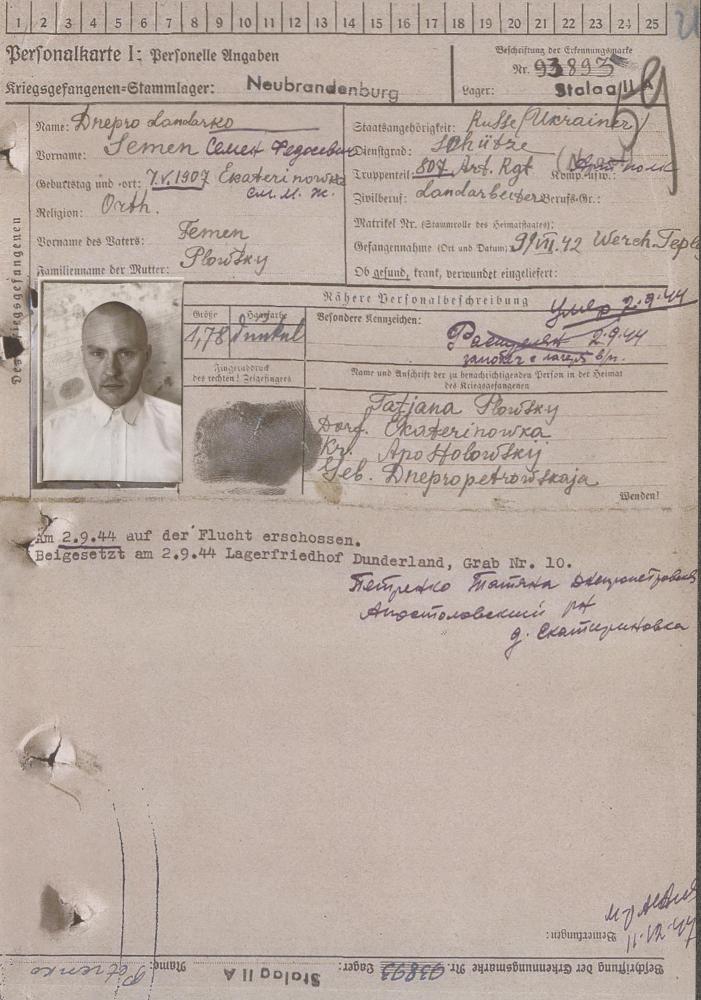 1 2 3 4 5 6 7 8 9 10 11 12 13 14 15 16 17 18 19 20 21 22 23 24 25
Personalkarte I: Personelle Angaben
Kriegsgefangenen=Stammlager: Neubrandenburg
Beschriftung der Erkennungsmarke
Nr. 93893
Lager: Stalag II A
Des Kriegsgefangenen
Name: Dnepro
Vorname: Semen Семен Федосеевич
Geburtstag und -ort: 7.V.1907 Ekaterinowka
см. м. ж.
Religion: Orth.
Vorname des Vaters: Femen
Familienname der Mutter: Plowsky
Staatsangehörigkeit: Russe (Ukrainer)
Dienstgrad: Schütze
Truppenteil: 807 Art. Rgt Komp. usw.:
Zivilberuf: Landarbeiter Berufs-Gr.:
Matrikel Nr. (Stammrolle des Heimatstaates):
Gefangennahme (Ort und Datum): 9/VII.42 Werch.
Ob gesund, krank, verwundet eingeliefert:
Nähere Personalbeschreibung
умер 2.9.44
Größe Haarfarbe
1,78 dunkel
Besondere Kennzeichen:
Расстрелян 2.9.44
Fingerabdruck
des rechten! Zeigefingers
Name und Anschrift der zu benachrichtigenden Person in der Heimat
des Kriegsgefangenen
Tatjana Plowsky
Dorf. Ekaterinowka
Kr. Apostolowskij
Geb. Dnepropetrowskaja
Wenden!
Am 2.9.44 auf der Flucht erschossen.
Beigesetzt am 2.9.44 Lagerfriedhof Dunderland, Grab Nr. 10.
Петренко Татяна
Апостоловский рн
д. Екатириновка
Bemerkungen:
Beschriftung der Erkennungsmarke Nr. 93893 Lager: Stalag II A Name: Petrenko